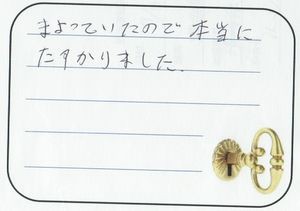 まよっていたので本当に
たすかりました.